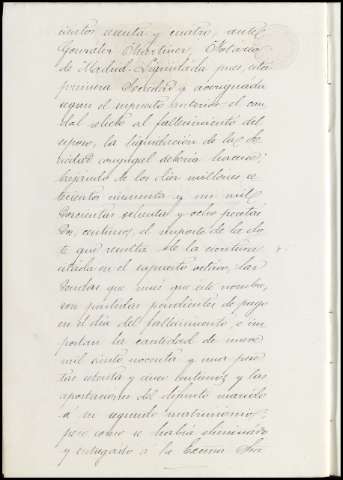 cientos sesenta y cuatro, ante
Gonzalez Martinez, Notario
de Madrid. Liquidada pues esta
primera Sociedad y averiguada
segun el supuesto anterior el cau
dal relicto al fallecimiento del
esposo, la liquidacion de la So
ciedad conyugal deberia hacerse
bajando de los diez millones se
tecientos cincuenta y un mil
doscientas setenta y ocho pesetas
dos centimos, el importe de la do
te que resulta de la escritura
citada en el supuesto octavo, las
deudas que mas que este nombre,
son partidas pendientes de pago
en el dia del fallecimiento, é im
portan la cantidad de nueve
mil ciento noventa y una pese
tas setenta y cinco centimos y las
aportaciones del difunto marido
á su segundo matrimonio;
pero como se habia eliminado
y entregado á la Excma Sra